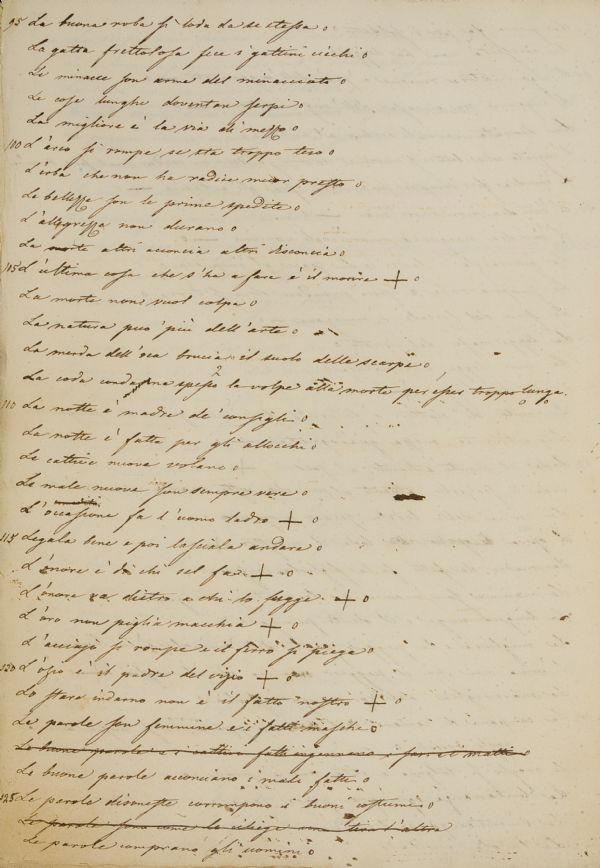 95 La buona roba si loda da se stessa o
La gatta frettolosa fece i gattini ciechi o
Le minacce son arme del minacciato o
Le cose lunghe doventan serpi o
La migliore è la via di mezzo o
100 L'arco si rompe se sta troppo teso o
L'erba che non ha radice muor presto o
Le bellezze son le prime spedite o
L'allegrezze non durano o
La morte altri acconcia altri disconcia o
105 L'ultima cosa che s'ha a fare è il morire + o
La morte non vuol colpa o
La natura può più dell'arte o
La merda dell'oca brucia il suolo delle scarpe o
La coda condanna spesso la volpe alla morte per esser troppo lunga.
110 La notte è madre de' consigli o
La notte è fatta per gli allocchi o
Le cattive nuove volano o
Le male nuove son sempre vere o
L'occasione fa l'uomo ladro + o
115 Legala bene e poi lasciala andare o
L'onore è di chi sel fa + o
L'onore va dietro a chi lo fugge + o
L'oro non piglia macchia + o
L'acciajo si rompe e il ferro si piega o
120 L'ozio è il padre del vizio + o
Lo stare indarno non è il fatto nostro + o
Le parole son femmine e i fatti maschi o
Le buone parole e i cattivi fatti ingannano i savi e i matti o
Le buone parole acconciano i mali fatti o
125 Le parole disoneste corrompono i buoni costumi o
Le parole sono come le ciliege una tira l'altra
Le parole comprano gli uomini o